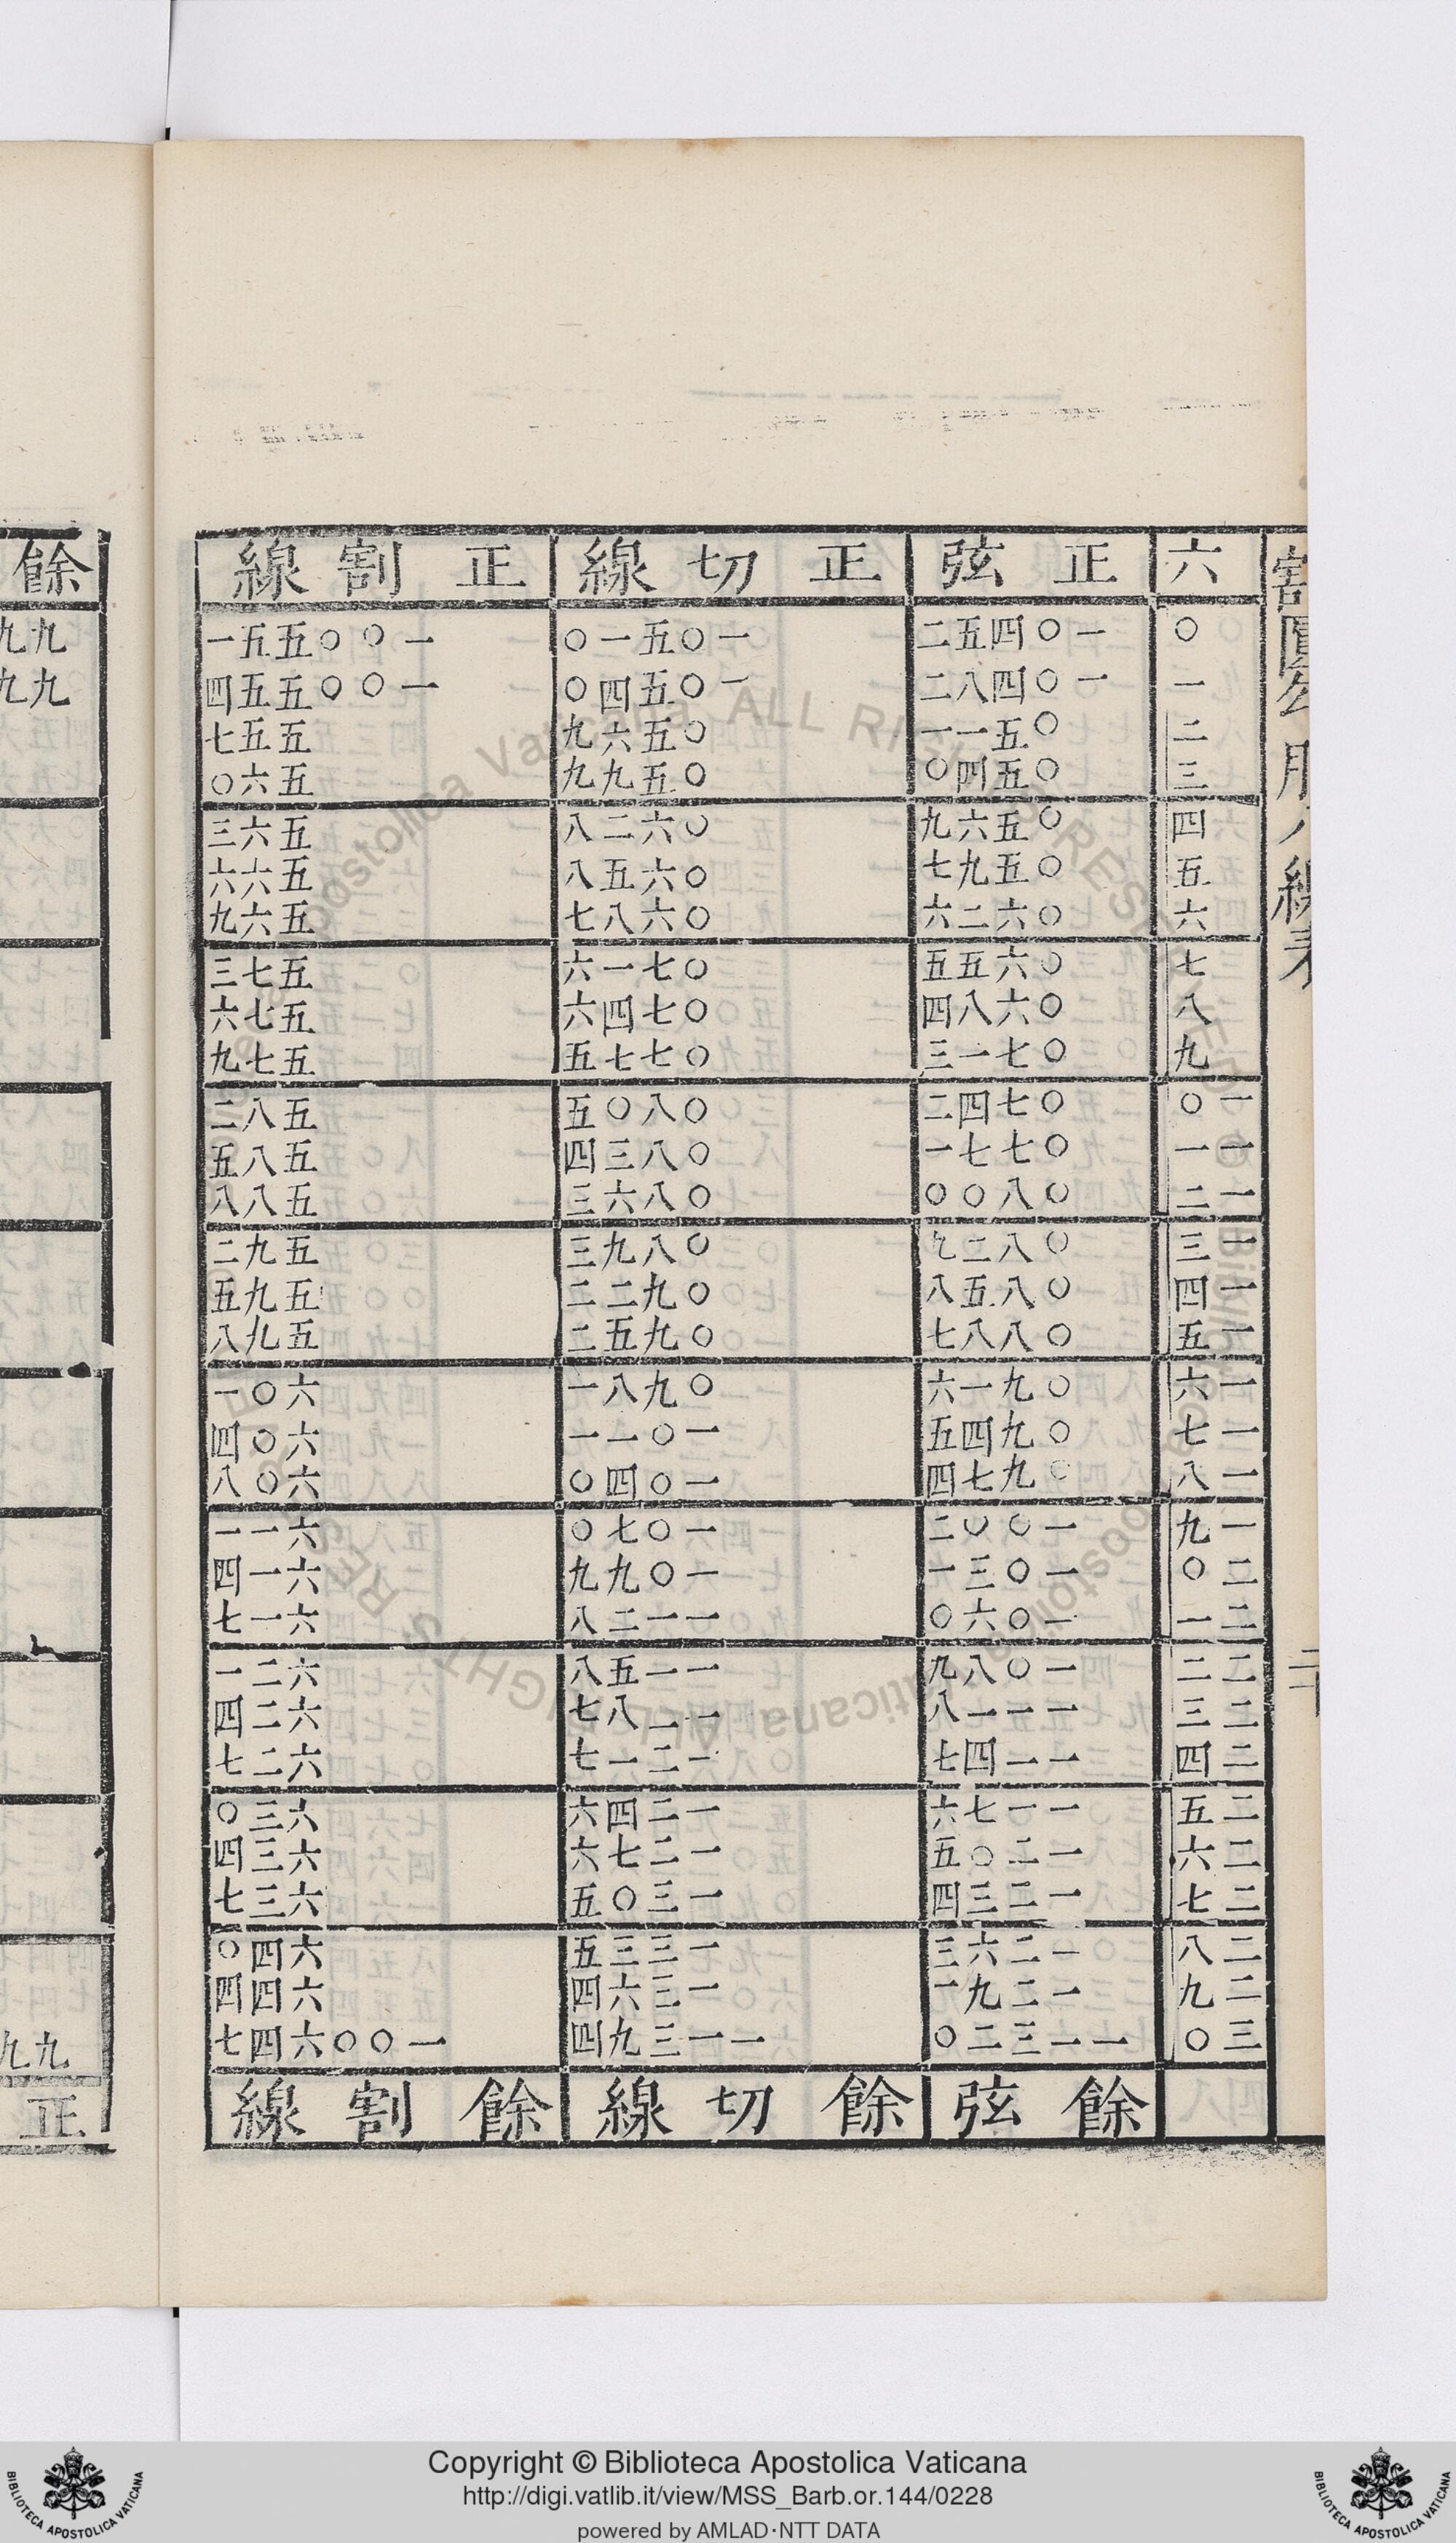 割圓勾股八線表
六 正弦 正切線 正割線
○ 一○四五二 一○五一○ 一○○五五一
一 一○四八二 一○五四○ 一○○五五四
二 ○五一一 ○五六九 五五七
三 ○五四○ ○五九九 五六○
四 ○五六九 ○六二八 五六三
五 ○五九七 ○六五八 五六六
六 ○六二六 ○六八七 五六九
七 ○六五五 ○七一六 五七三
八 ○六八四 ○七四六 五七六
九 ○七一三 ○七七五 五七九
一○ ○七四二 ○八○五 五八二
一一 ○七七一 ○八三四 五八五
一二 ○八○○ ○八六三 五八八
一三 ○八二九 ○八九三 五九二
一四 ○八五八 ○九二二 五九五
一五 ○八八七 ○九五二 五九八
一六 ○九一六 ○九八一 六○一
一七 ○九四五 一○一一 六○四
一八 ○九七四 一○四○ 六○八
一九 一○○二 一○七○ 六一一
二○ 一○三一 一○九九 六一四
二一 一○六○ 一一二八 六一七
二二 一○八九 一一五八 六二一
二三 一一一八 一一八七 六二四
二四 一一四七 一二一七 六二七
二五 一一七六 一二四六 六三○
二六 一二○五 一二七六 六三四
二七 一二三四 一三○五 六三七
二八 一二六三 一三三五 六四○
二九 一二九一 一三六四 六四四
三○ 一一三二○ 一一三九四 一○○六四七
餘弦 餘切線 餘割線
餘
九九
九九
九九
正
Copyright © Biblioteca Apostolica Vaticana
http://digi.vatlib.it/view/MSS_Barb.or.144/0228
powered by AMLAD·NTT DATA
BIBLIOTECA APOSTOLICA VATICANA
BIBLIOTECA APOSTOLICA VATICANA